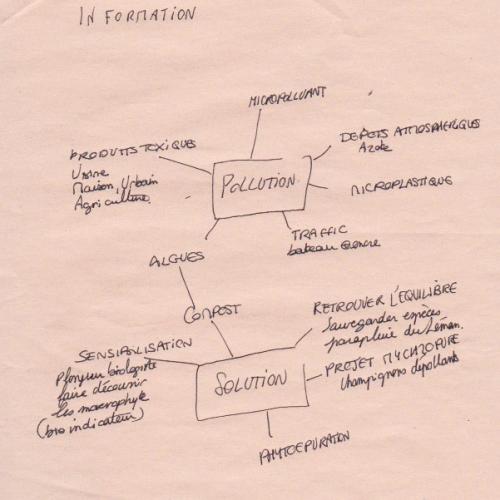 INFORMATION
MICROPOLLUANT
DEPETS ATMOSPHERIQUES
Azote
PRODUITS TOXIQUES
Usine
Maison, Urbain
Agriculture
POLLUTION
MICROPLASTIQUE
TRAFFIC
bateau @ encre
ALGUES
COMPOST
RETROUVER L'EQUILIBRE
Sauvegarder espèces
parapluie du Léman.
SENSIBILISATION
Plongeur biologiste
faire découvrir
les macrophyte
(bio indicateur)
SOLUTION
PROJET MYCHZOPURE
Champignons dépolluants
PHYTOEPURATION